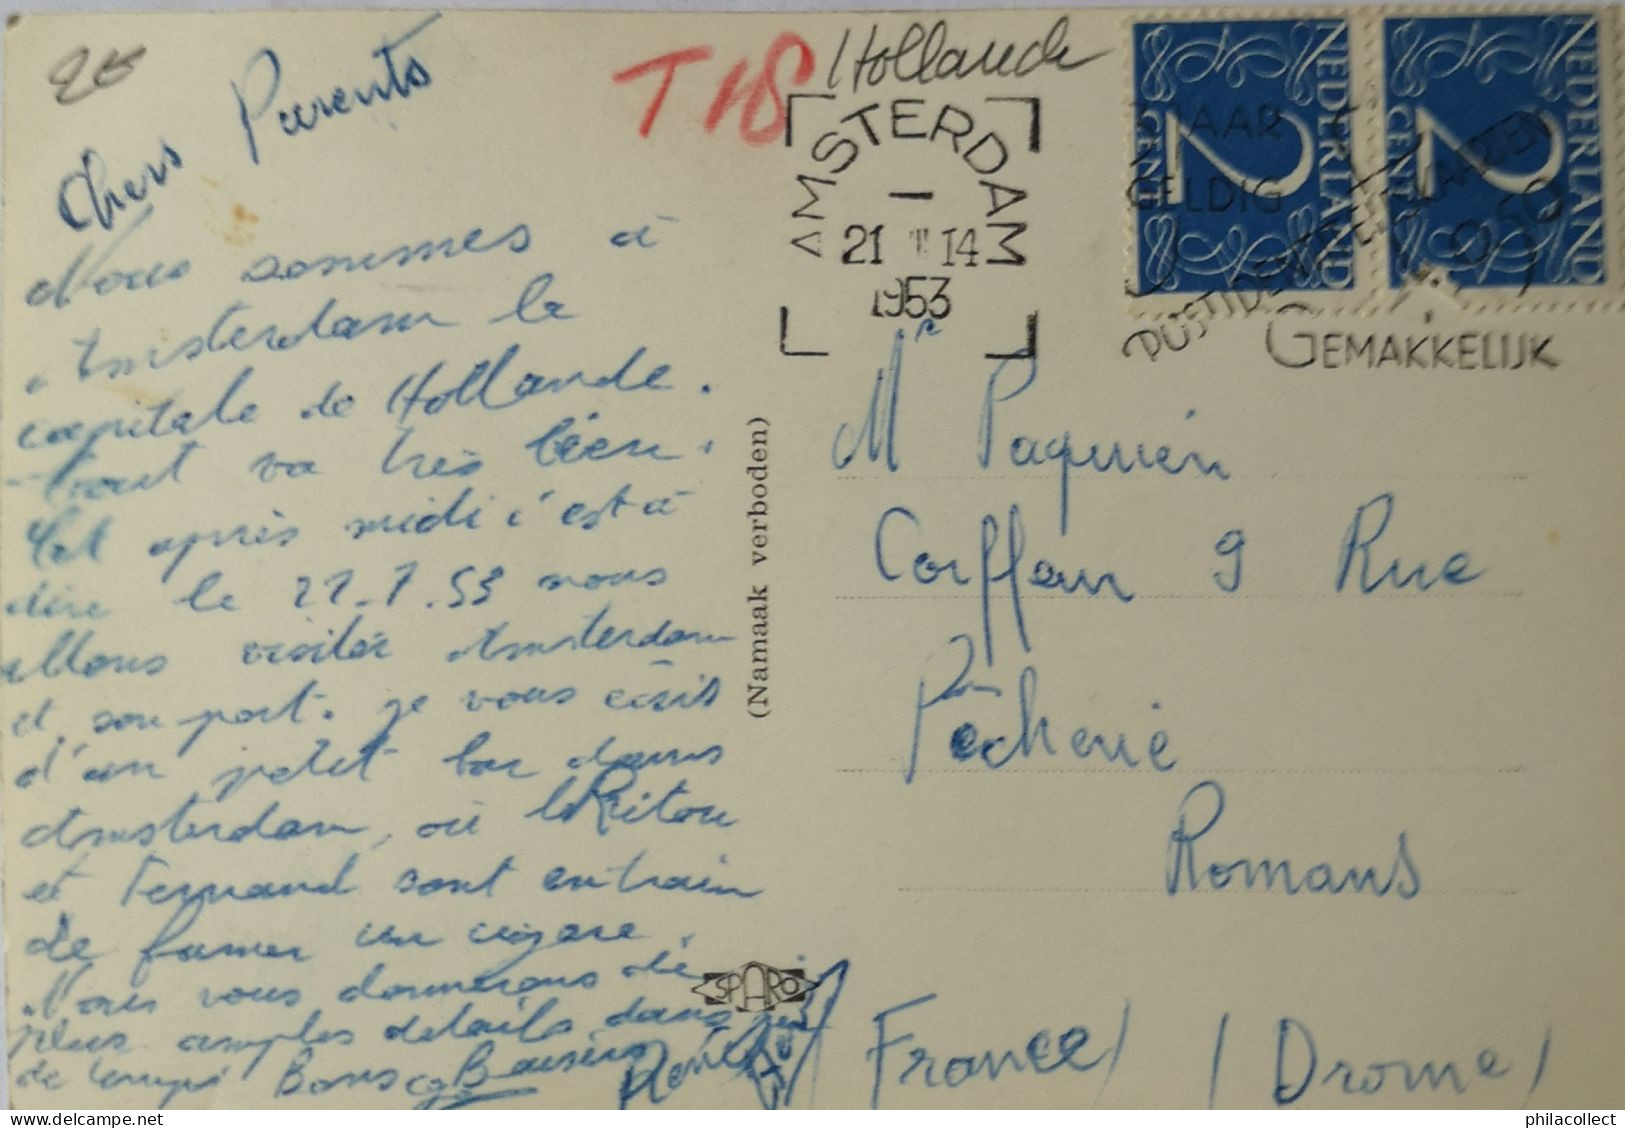 25
Chers Parents
Nous sommes à
Amsterdam la
capitale de Hollande.
tout va très bien.
Cet après midi c'est à
dire le 21.7.53 nous
allons visiter Amsterdam
et son port. je vous écris
d'un petit bar dans
Amsterdam, où le Ritou
et Fernand sont entrain
de fumer un cigare.
Nous vous donnerons de
plus amples détails dans
de temps Bons Baisers
(Namaak verboden)
SPARO
T 18
Hollande
AMSTERDAM
21 14
1953
NEDERLAND
2
CENT
NEDERLAND
2
CENT
JAAR
GELDIG
GEMAKKELIJK
Mr Paquien
Coiffeur 9 Rue
Pêcherie
Romans
France / (Drome)
philacollect